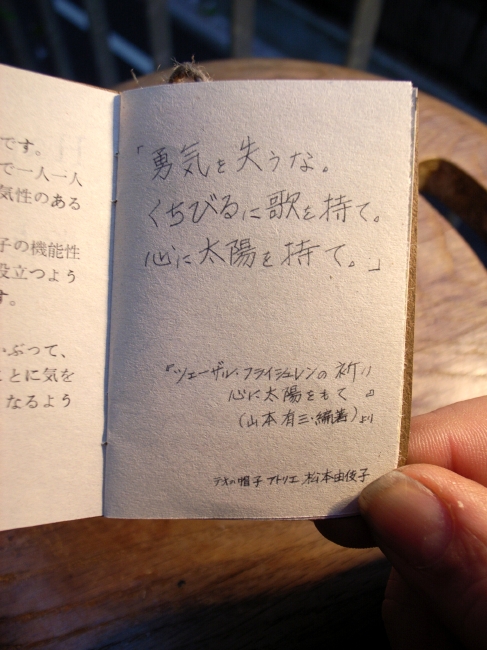 です。
で一人一人
気性のある
子の機能性
役立つよう
す。
ぶって、
ことに気を
なるよう
「勇気を失うな。
くちびるに歌を持て。
心に太陽を持て。」
『ツェーザル・フライシュレンの祈り
心に太陽をもて』
(山本有三・編著)より
帽子アトリエ 松本由俊子